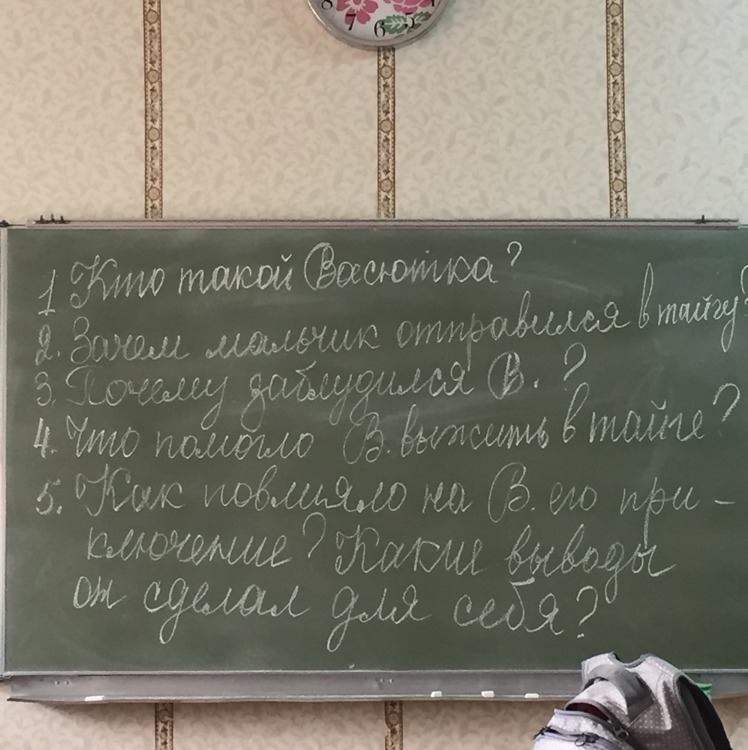 8 7 6 5 4
1 Кто такой Васютка?
2. Зачем мальчик отправился в тайгу?
3. Почему заблудился В. ?
4. Что помогло В. выжить в тайге?
5. Как повлияло на В. его при-
ключение? Какие выводы
он сделал для себя?